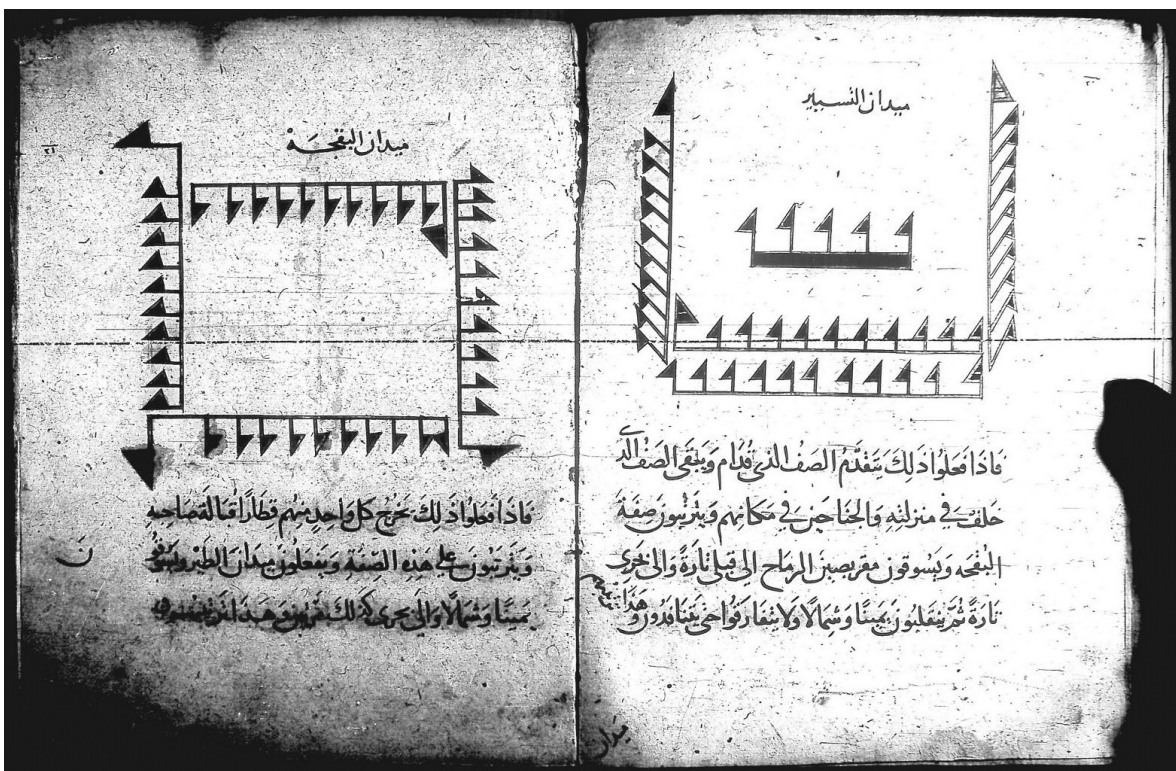 ميدان التسيير
فاذا فعلوا ذلك يتقدم الصف الذي قدام ويبقى الصف الذي
خلف في منزلته والجناحين في مكانهم ويترتبون صفة
البقجه ويسوقون مقربصين الرماح الى قبلى تارة والى بحرى
تارة ثم ينقلبون يمينا وشمالا ولا يتفارقوا حتى يتنافدون وهذا
ميدان
ميدان البقجة
فاذا فعلوا ذلك يخرج كل واحد منهم قطارا قبالة صاحبه
ويترتبون على هذه الصفة ويفعلون ميدان الطير
يمينا وشمالا والى بحرى كذلك